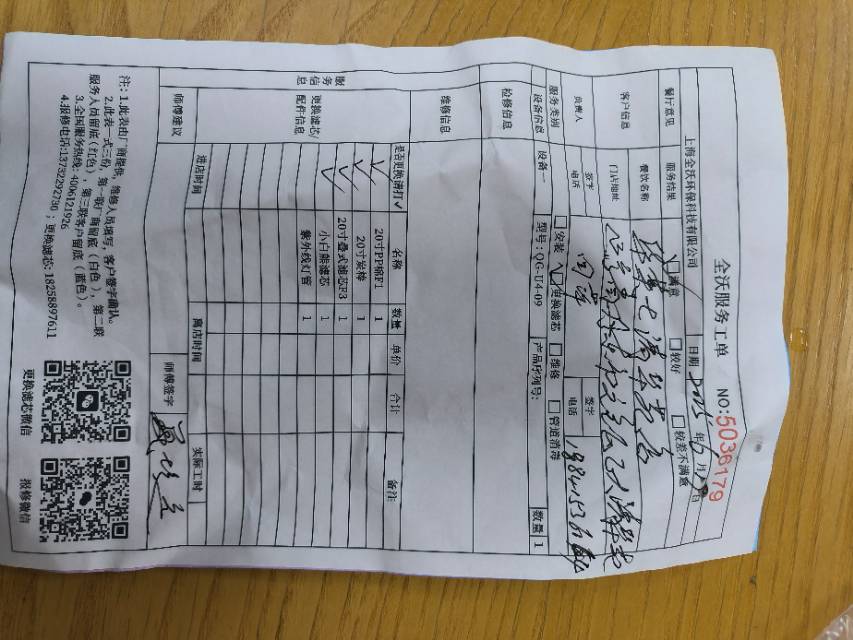 全沃服务工单 NO:5036179
上海全沃环保科技有限公司 日期 2025年6月 日
餐厅意见 服务结果 ☑满意 □较好 □较差不满意
客户信息 餐饮名称
门店地址
负责人 签字 签字
电话 电话
服务类别 □安装 ☑更换滤芯 □维修 □管道消毒
设备信息 设备一 型号:QG-IF4-09 产品序列号: 数量 1
检修信息
维修信息
服务信息
更换滤芯/配件信息 是否更换请打✓ 名称 数量 单价 合计 备注
✓ 20寸PP棉F1 1
✓ 20寸炭棒 1
✓ 20寸叠式滤芯F3 1
✓ 小白熊滤芯 1
紫外线灯管 1
进店时间 离店时间 实际工时
师傅建议 师傅签字
注:1.此表由厂商提供,维修人员填写,客户签字确认。
2.此表一式三份,第一联厂商留底(白色),第二联
服务人员留底(红色),第三联客户留底(蓝色)。
3.全国服务热线:4006121926
4.报修电话:13732292730;更换滤芯:18258897611
更换滤芯微信 报修微信